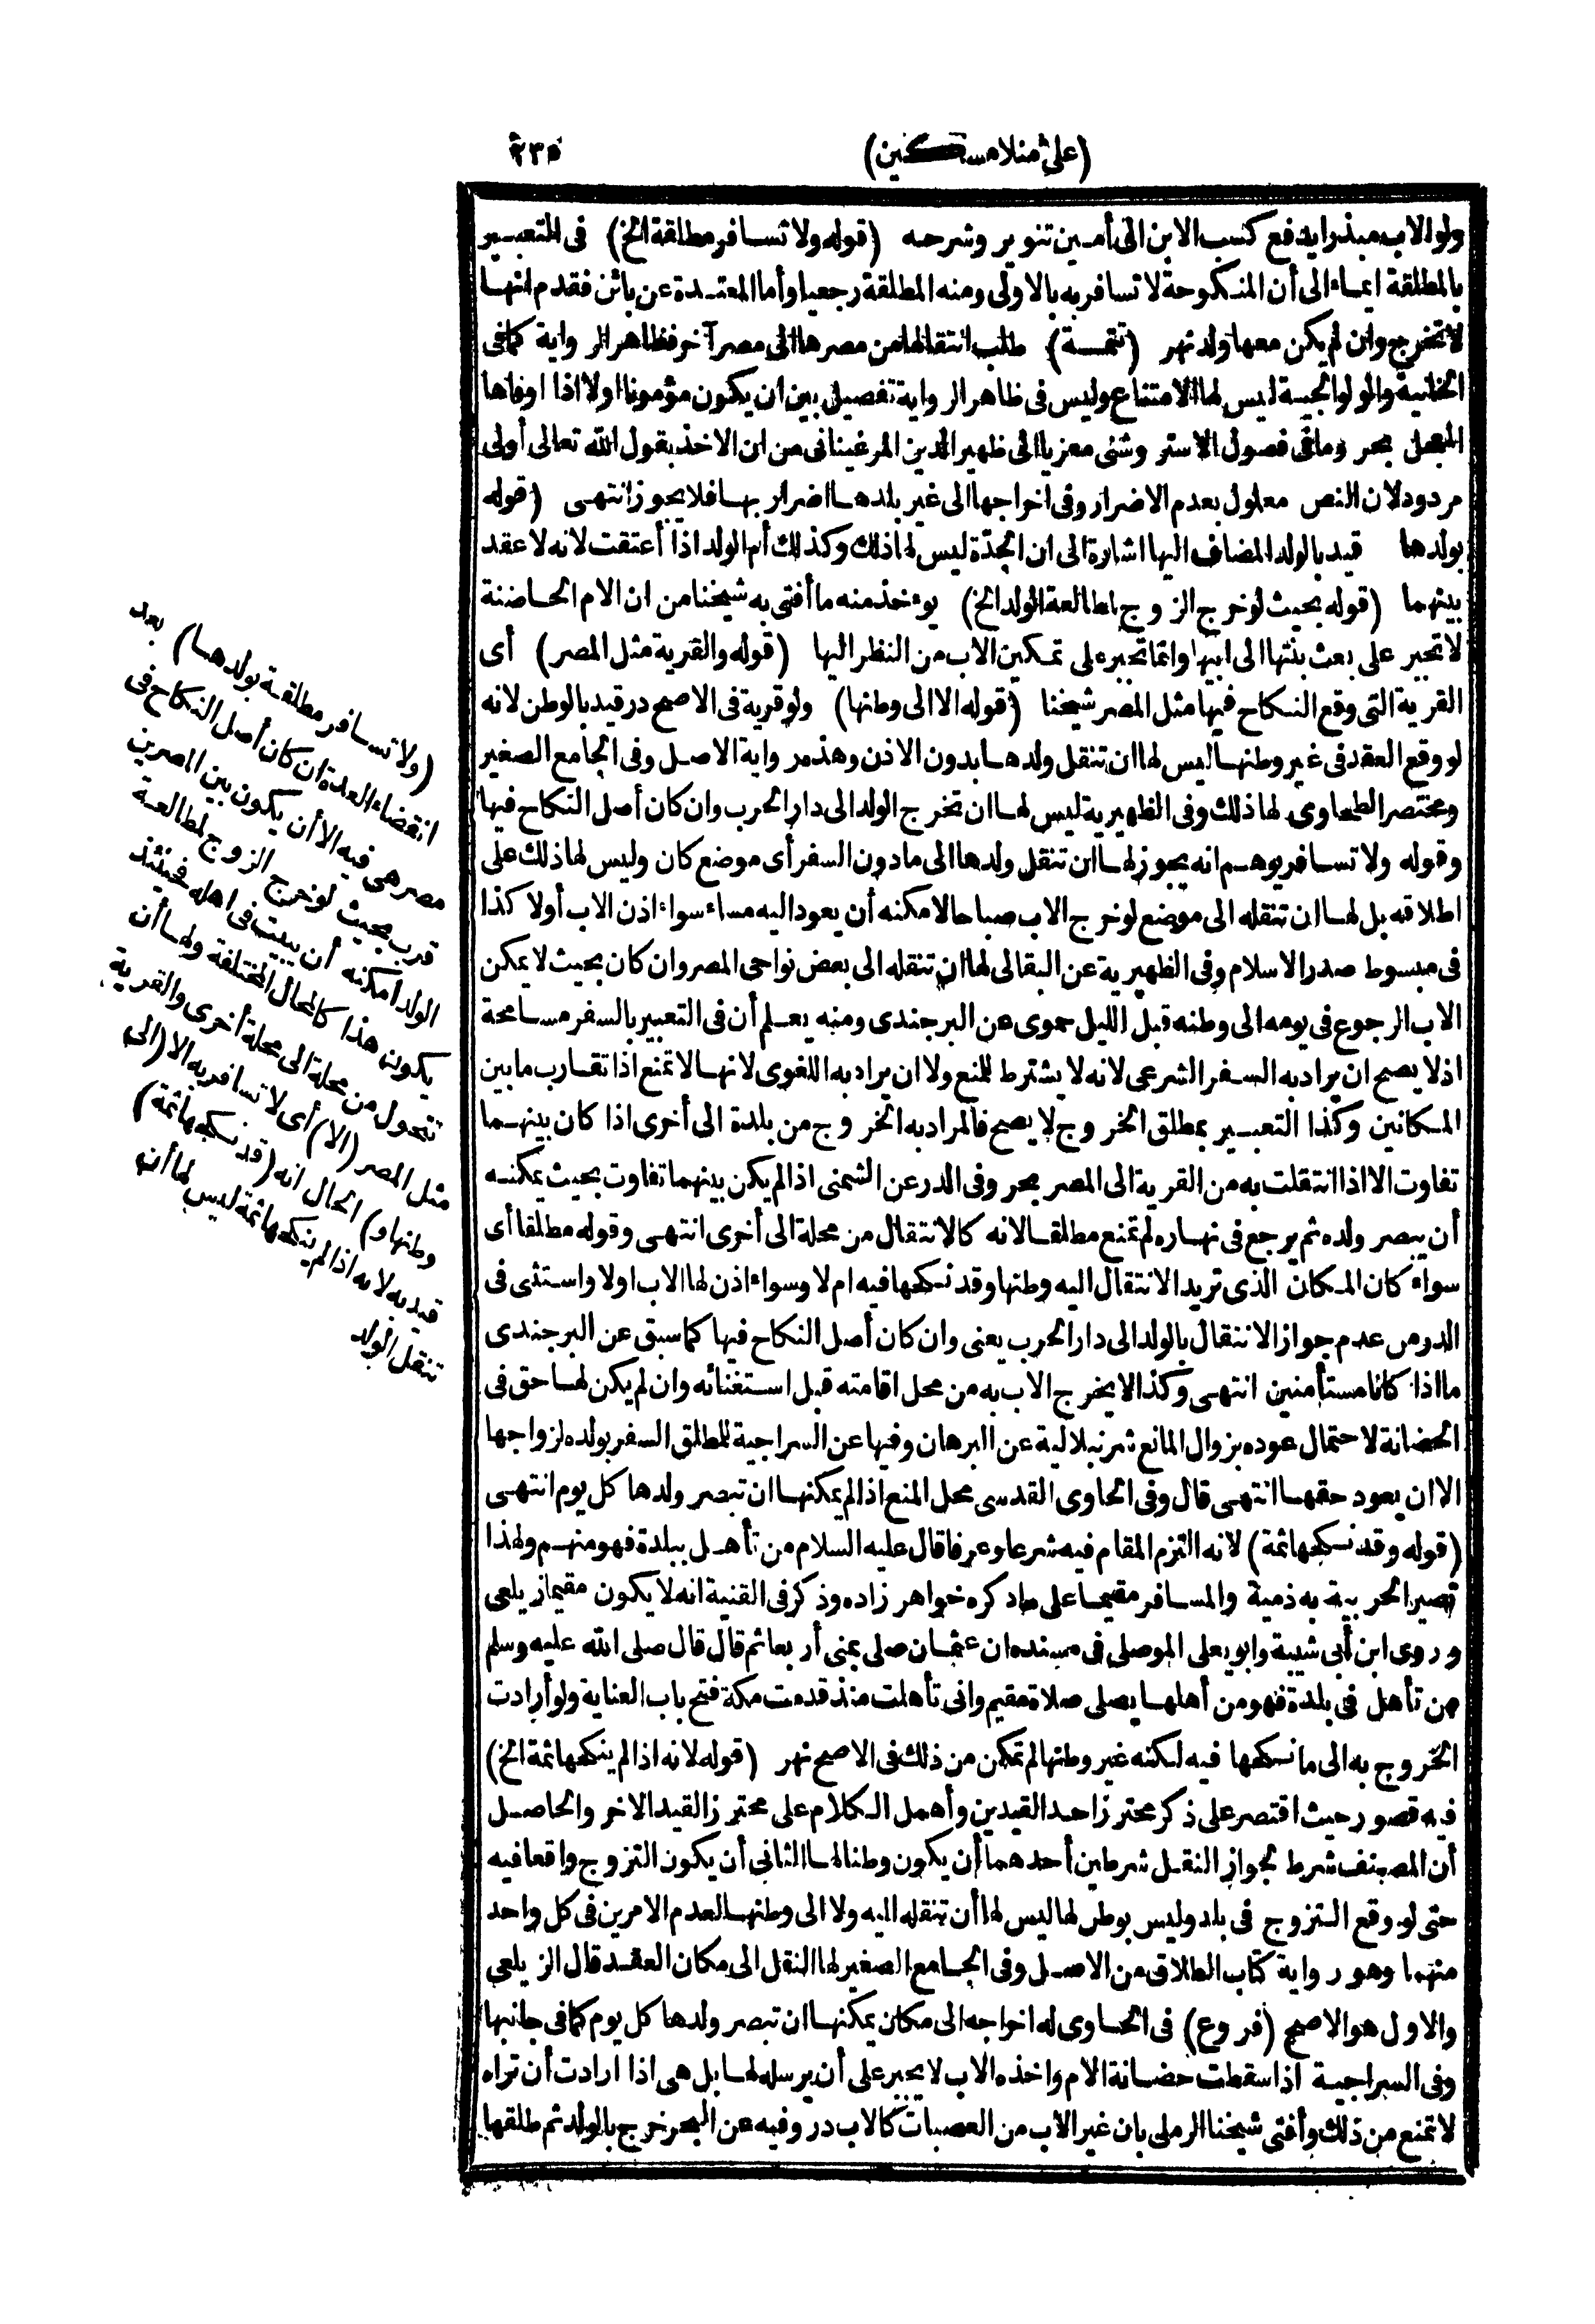 (على منلا مسكين) ٢٣٥
ولو الاب مبذرا يدفع كسب الابن الى أمين تنوير وشرحه (قوله ولا تسافر مطلقة الخ) فى التعبير
بالمطلقة ايماء الى أن المنكوحة لا تسافر به بالاولى ومنه المطلقة رجعيا وأما المعتدة عن بائن فقدم انها
لا تخرج وان لم يكن معها ولد نهر (تتمة) طلب انتقالها من مصرها الى مصر آخر فظاهر الرواية كما فى
الخانية والولوالجية ليس لها الامتناع وليس فى ظاهر الرواية تفصيل بين ان يكون مؤمونا اولا اذا اوفاها
المعجل بحر وما فى فصول الاستروشنى معزيا الى ظهير الدين المرغينانى من ان الاخذ بقول الله تعالى أولى
مردود لان النص معلول بعدم الاضرار وفى اخراجها الى غير بلدها اضرار بها فلا يجوز انتهى (قوله
بولدها قيد بالولد المضاف اليها اشارة الى ان الجدّة ليس لها ذلك وكذلك أم الولد اذا أعتقت لانه لا عقد
بينهما (قوله بحيث لو خرج الزوج لمطالعة الولد الخ) يؤخذ منه ما أفتى به شيخنا من ان الام الحاضنة
لا تجبر على بعث بنتها الى ابيها وانما تجبر على تمكين الاب من النظر اليها (قوله والقرية مثل المصر) أى
القرية التى وقع النكاح فيها مثل المصر شيخنا (قوله الا الى وطنها) ولو قرية فى الاصح در قيد بالوطن لانه
لو وقع العقد فى غير وطنها ليس لها ان تنقل ولدها بدون الاذن وهذه رواية الاصل وفى الجامع الصغير
ومختصر الطحاوى لها ذلك وفى الظهيرية ليس لها ان تخرج الولد الى دار الحرب وان كان أصل النكاح فيها
وقوله ولا تسافر يوهم انه يجوز لها ان تنقل ولدها الى ما دون السفر أى موضع كان وليس لها ذلك على
اطلاقه بل لها ان تنقله الى موضع لو خرج الاب صباحا لا مكنه أن يعود اليه مساء سواء اذن الاب أولا كذا
فى مبسوط صدر الاسلام وفى الظهيرية عن البقالى لها ان تنقله الى بعض نواحى المصر وان كان بحيث لا يمكن
الاب الرجوع فى يومه الى وطنه قبل الليل حموى عن البرجندى ومنه يعلم أن فى التعبير بالسفر مسامحة
اذ لا يصح ان يراد به السفر الشرعى لانه لا يشترط للمنع ولا ان يراد به اللغوى لانها لا تمنع اذا تقارب ما بين
المكانين وكذا التعبير بمطلق الخروج لا يصح فالمراد به الخروج من بلدة الى أخرى اذا كان بينهما
تفاوت الا اذا انتقلت به من القرية الى المصر بحر وفى الدر عن الشمنى اذا لم يكن بينهما تفاوت بحيث يمكنه
أن يبصر ولده ثم يرجع فى نهاره لم تمنع مطلقا لانه كالانتقال من محلة الى أخرى انتهى وقوله مطلقا أى
سواء كان المكان الذى تريد الانتقال اليه وطنها وقد نكحها فيه ام لا وسواء اذن لها الاب اولا واستثنى فى
الدر من عدم جواز الانتقال بالولد الى دار الحرب يعنى وان كان أصل النكاح فيها كما سبق عن البرجندى
ما اذا كانا مستأمنين انتهى وكذا لا يخرج الاب به من محل اقامته قبل استغنائه وان لم يكن لها حق فى
الحضانة لاحتمال عوده بزوال المانع شرنبلالية عن البرهان وفيها عن السراجية للمطلق السفر بولده لزواجها
الا ان يعود حقها انتهى قال وفى الحاوى القدسى محل المنع اذا لم يمكنها ان تبصر ولدها كل يوم انتهى
(قوله وقد نكحها ثمة) لانه التزم المقام فيه شرعا وعرفا قال عليه السلام من تأهل ببلدة فهو منهم ولهذا
تصير الحربية به ذمية والمسافر مقيما على ما ذكره خواهر زاده وذكر فى القنية انه لا يكون مقيما زيلعى
وروى ابن أبى شيبة وابو يعلى الموصلى فى مسنده ان عثمان صلى بمنى أربعا ثم قال قال صلى الله عليه وسلم
من تأهل فى بلدة فهو من أهلها يصلى صلاة مقيم وانى تأهلت منذ قدمت مكة فتح باب العناية ولو أرادت
الخروج به الى ما نكحها فيه لكنه غير وطنها لم تمكن من ذلك فى الاصح نهر (قوله لانه اذا لم ينكحها ثمة الخ)
فيه قصور حيث اقتصر على ذكر محترز احد القيدين وأهمل الكلام على محترز القيد الاخر والحاصل
أن المصنف شرط لجواز النقل شرطين أحدهما أن يكون وطنا لها الثانى أن يكون التزوج واقعا فيه
حتى لو وقع التزوج فى بلد وليس بوطن لها ليس لها أن تنقله اليه ولا الى وطنها لعدم الامرين فى كل واحد
منهما وهو رواية كتاب الطلاق من الاصل وفى الجامع الصغير لها النقل الى مكان العقد قال الزيلعى
والاول هو الاصح (فروع) فى الحاوى له اخراجه الى مكان يمكنها ان تبصر ولدها كل يوم كما فى جانبها
وفى السراجية اذا سقطت حضانة الام واخذه الاب لا يجبر على أن يرسله لها بل هى اذا ارادت أن تراه
لا تمنع من ذلك وأفتى شيخنا الرملى بان غير الاب من العصبات كالاب در وفيه عن البحر خرج بالولد ثم طلقها
(ولا تسافر مطلقة بولدها) بعد
انقضاء العدة ان كان أصل النكاح فى
مصر هى فيه الا أن يكون بين المصرين
قرب بحيث لو خرج الزوج لمطالعة
الولد أمكنه أن يبيت فى اهله فحينئذ
يكون هذا كالمحال المختلفة ولها أن
تتحول من محلة الى محلة أخرى والقرية
مثل المصر (الا) أى لا تسافر به الا (الى
وطنها و) الحال انه (قد نكحها ثمة)
قيد به لانه اذا لم ينكحها ثمة ليس لها أن
تنقل الولد